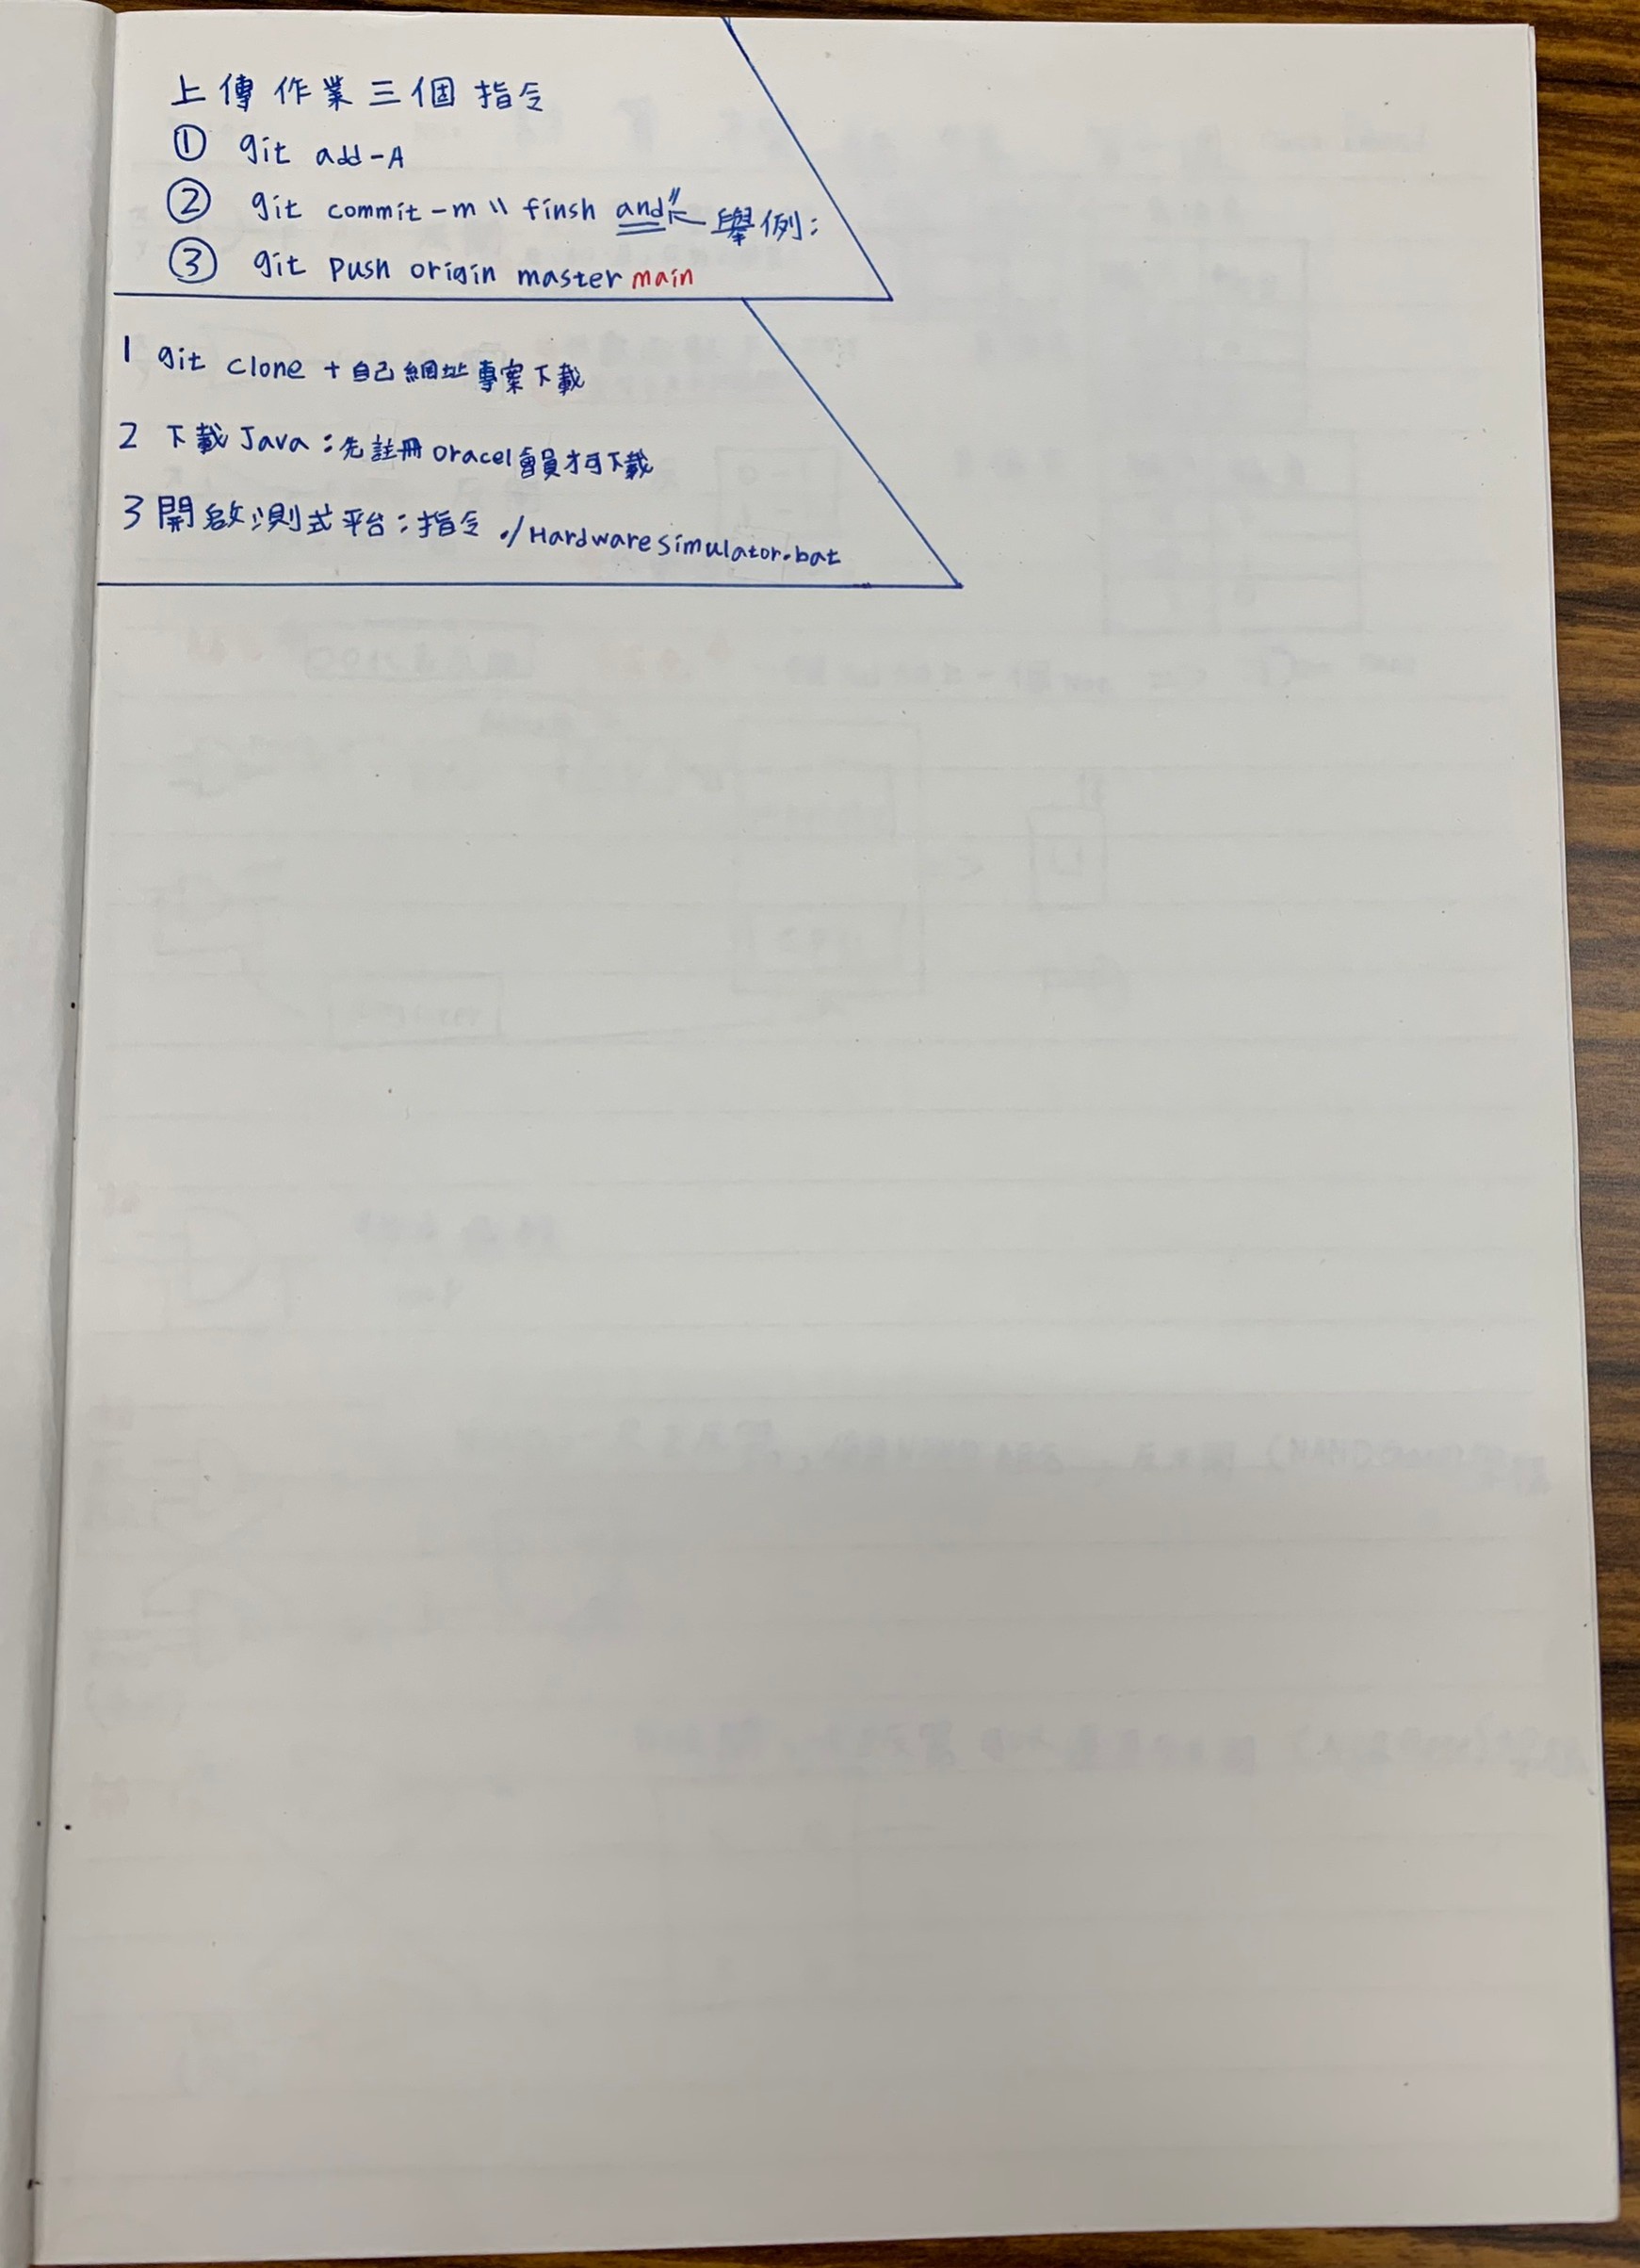 上傳作業三個指令
① git add-A
② git commit-m " finsh and" ← 舉例:
③ git push origin master main
1 git clone + 自己網址專案下載
2 下載Java:先註冊oracel會員才可下載
3 開啟測式平台:指令 ./HardwareSimulator.bat